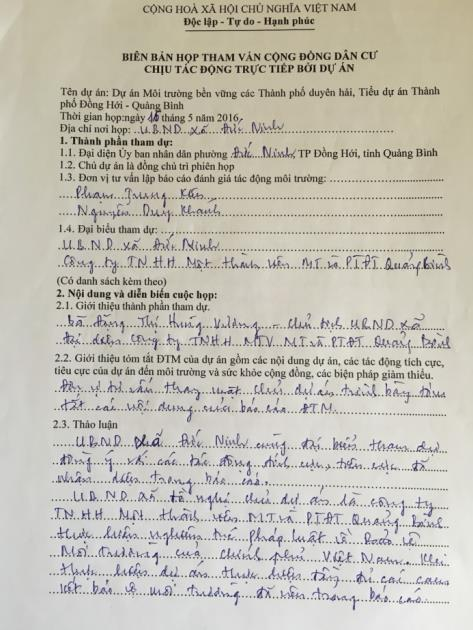 CỘNG HOÀ XÃ HỘI CHỦ NGHĨA VIỆT NAM
Độc lập - Tự do - Hạnh phúc
BIÊN BẢN HỌP THAM VẤN CỘNG ĐỒNG DÂN CƯ
CHỊU TÁC ĐỘNG TRỰC TIẾP BỞI DỰ ÁN
Tên dự án: Dự án Môi trường bền vững các Thành phố duyên hải, Tiểu dự án Thành
phố Đồng Hới - Quảng Bình
Thời gian họp:ngày 16 tháng 5 năm 2016
Địa chỉ nơi họp: UBND xã Đức Ninh
1. Thành phần tham dự:
1.1. Đại diện Ủy ban nhân dân phường Đức Ninh, TP Đồng Hới, tỉnh Quảng Bình
1.2. Chủ dự án là đồng chủ trì phiên họp
1.3. Đơn vị tư vấn lập báo cáo đánh giá tác động môi trường:
Phạm Trung Kiên
Nguyễn Duy Khanh
1.4. Đại biểu tham dự:
UBND xã Đức Ninh
Công ty TNHH Một thành viên MT và PTĐT Quảng Bình
(Có danh sách kèm theo)
2. Nội dung và diễn biến cuộc họp:
2.1. Giới thiệu thành phần tham dự.
bà Đặng Thị Hùng Vương - chủ tịch UBND xã
đại diện Công ty TNHH MTV MT và PTĐT Quảng Bình
2.2. Giới thiệu tóm tắt ĐTM của dự án gồm các nội dung dự án, các tác động tích cực,
tiêu cực của dự án đến môi trường và sức khỏe cộng đồng, các biện pháp giảm thiểu.
Đơn vị tư vấn thay mặt chủ dự án trình bày tóm
tắt các nội dung của báo cáo ĐTM.
2.3. Thảo luận
UBND xã Đức Ninh cùng đại biểu tham dự
đồng ý với các tác động tích cực, tiêu cực đã
nhận diện trong báo cáo.
UBND xã đề nghị chủ dự án là công ty
TNHH Một thành viên MT và PTĐT Quảng Bình
thực hiện nghiêm túc pháp luật về Bảo vệ
Môi trường của chính phủ Việt Nam. Khi
thực hiện dự án thực hiện đầy đủ các cam
kết bảo vệ môi trường đã nêu trong báo cáo